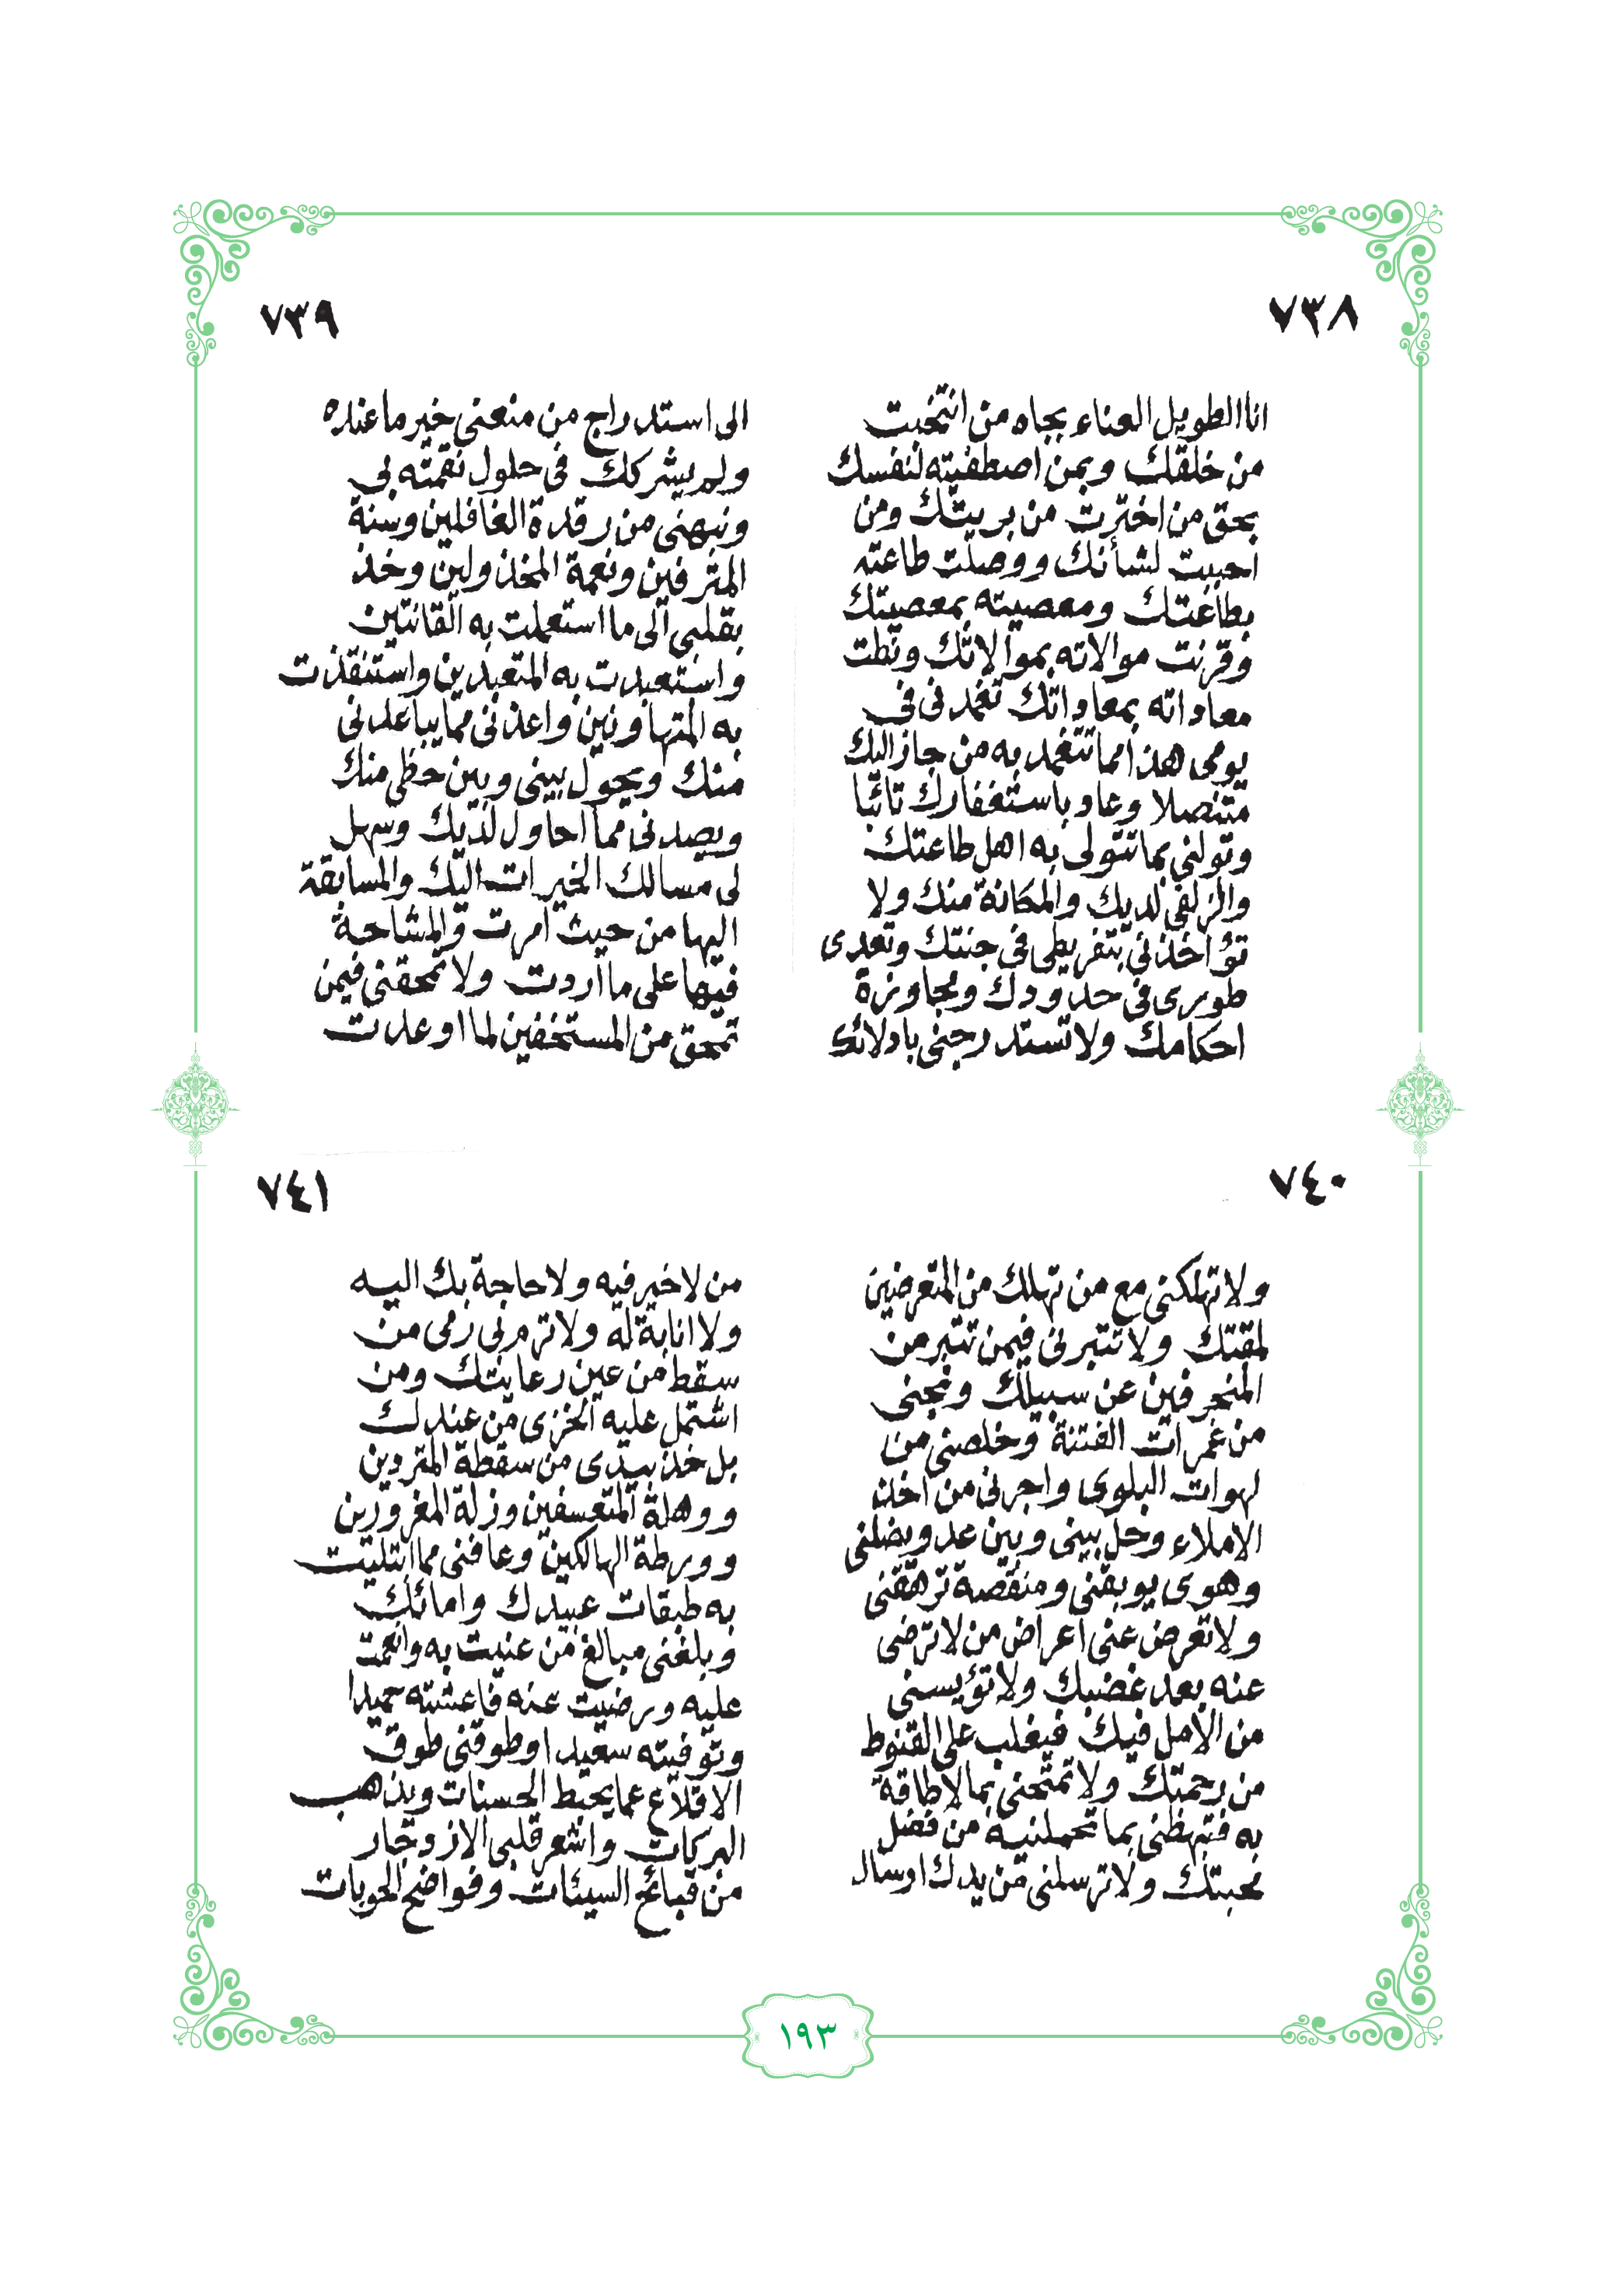 ٧٣٨
انا الطويل العناء بجاه من انتخبت
من خلقك وبمن اصطفيته لنفسك
بحق من اخترت من بريتك ومن
احببت لشأنك ووصلت طاعته
بطاعتك ومعصيته بمعصيتك
وقرنت موالاته بموالاتك ونطت
معاداته بمعاداتك تغمدنى فى
يومى هذا مما تتغمد به من جاز اليك
متنصلا وعاد باستغفارك تائبا
وتولنى بما تتولى به اهل طاعتك
والزلفى لديك والمكانة منك ولا
تؤاخذنى بتفريطى فى جنتك وتعدى
طورى فى حدودك ومجاوزة
احكامك ولا تستدرجنى بادلائك
٧٣٩
الى استدراج من منعنى خير ما عنده
ولم يشركك فى حلول نقمته بى
ونبهنى من رقدة الغافلين وسنة
المترفين ونعمة المخذولين وخذ
بقلبى الى ما استعملت به القانتين
واستعبدت به المتعبدين واستنقذت
به المتهاونين واعذنى مما يباعدنى
منك ويحول بينى وبين حظى منك
ويصدنى مما احاول لديك وسهل
لى مسالك الخيرات اليك والمسابقة
اليها من حيث امرت والمشاحة
فيها على ما اردت ولا تمحقنى فيمن
تمحق من المستخفين لما اوعدت
٧٤٠
ولا تهلكنى مع من تهلك من المتعرضين
لمقتك ولا تتبرنى فيمن تتبر من
المنحرفين عن سبيلك ونجنى
من غمرات الفتنة وخلصنى من
لهوات البلوى واجرنى من اخذ
الاملاء وحل بينى وبين عدو يضلنى
وهوى يوبقنى ومنقصة ترهقنى
ولا تعرض عنى اعراض من لا ترضى
عنه بعد غضبك ولا تؤيسنى
من الأمل فيك فيغلب على القنوط
من رحمتك ولا تمتحنى بما لا طاقة
به فتبهظنى بما تحملنيه من فضل
محبتك ولا ترسلنى من يدك اوسال
٧٤١
من لا خير فيه ولا حاجة بك اليه
ولا انابة له ولا ترم بى رمى من
سقط من عين رعايتك ومن
اشتمل عليه الخزى من عندك
بل خذ بيدى من سقطة المتردين
ووهلة المتعسفين وزلة المغرورين
وورطة الهالكين وعافنى مما ابتليت
به طبقات عبيدك وامائك
وبلغنى مبالغ من عنيت به وانعمت
عليه ورضيت عنه فاعشته حميدا
وتوفيته سعيدا وطوقنى طوق
الاقلاع عما يحبط الحسنات ويذهب
البركات واشعر قلبى الازدجار
من قبائح السيئات وفواضح الحوبات
١٩٣